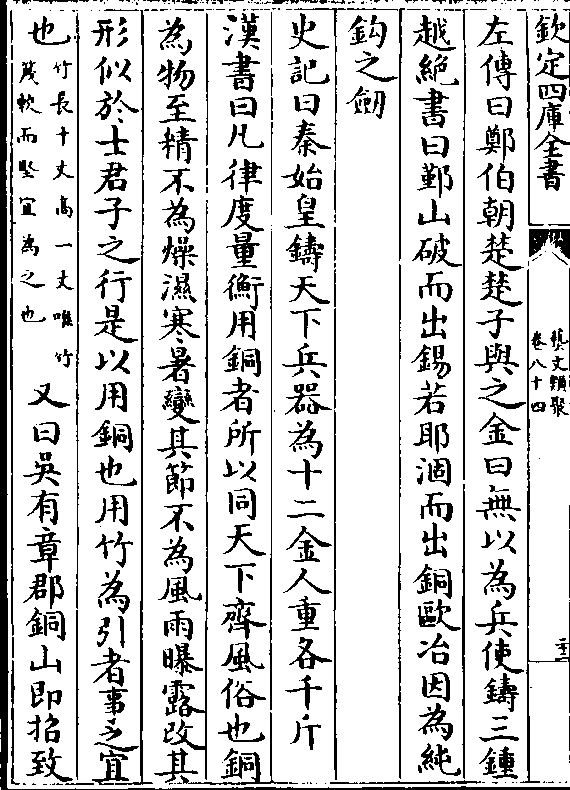 欽定四庫全書
藝文類聚
卷八十四
左傳曰鄭伯朝楚楚子與之金曰無以為兵使鑄三鍾
越絕書曰鄞山破而出錫若耶涸而出銅歐冶因為純
鈎之劒
史記曰秦始皇鑄天下兵器為十二金人重各千斤
漢書曰凡律度量衡用銅者所以同天下齊風俗也銅
為物至精不為燥濕寒暑變其節不為風雨曝露改其
形似於士君子之行是以用銅也用竹為引者事之宜
也竹長十丈高一丈唯竹
篾軟而堅宜為之也
又曰吳有章郡銅山即招致